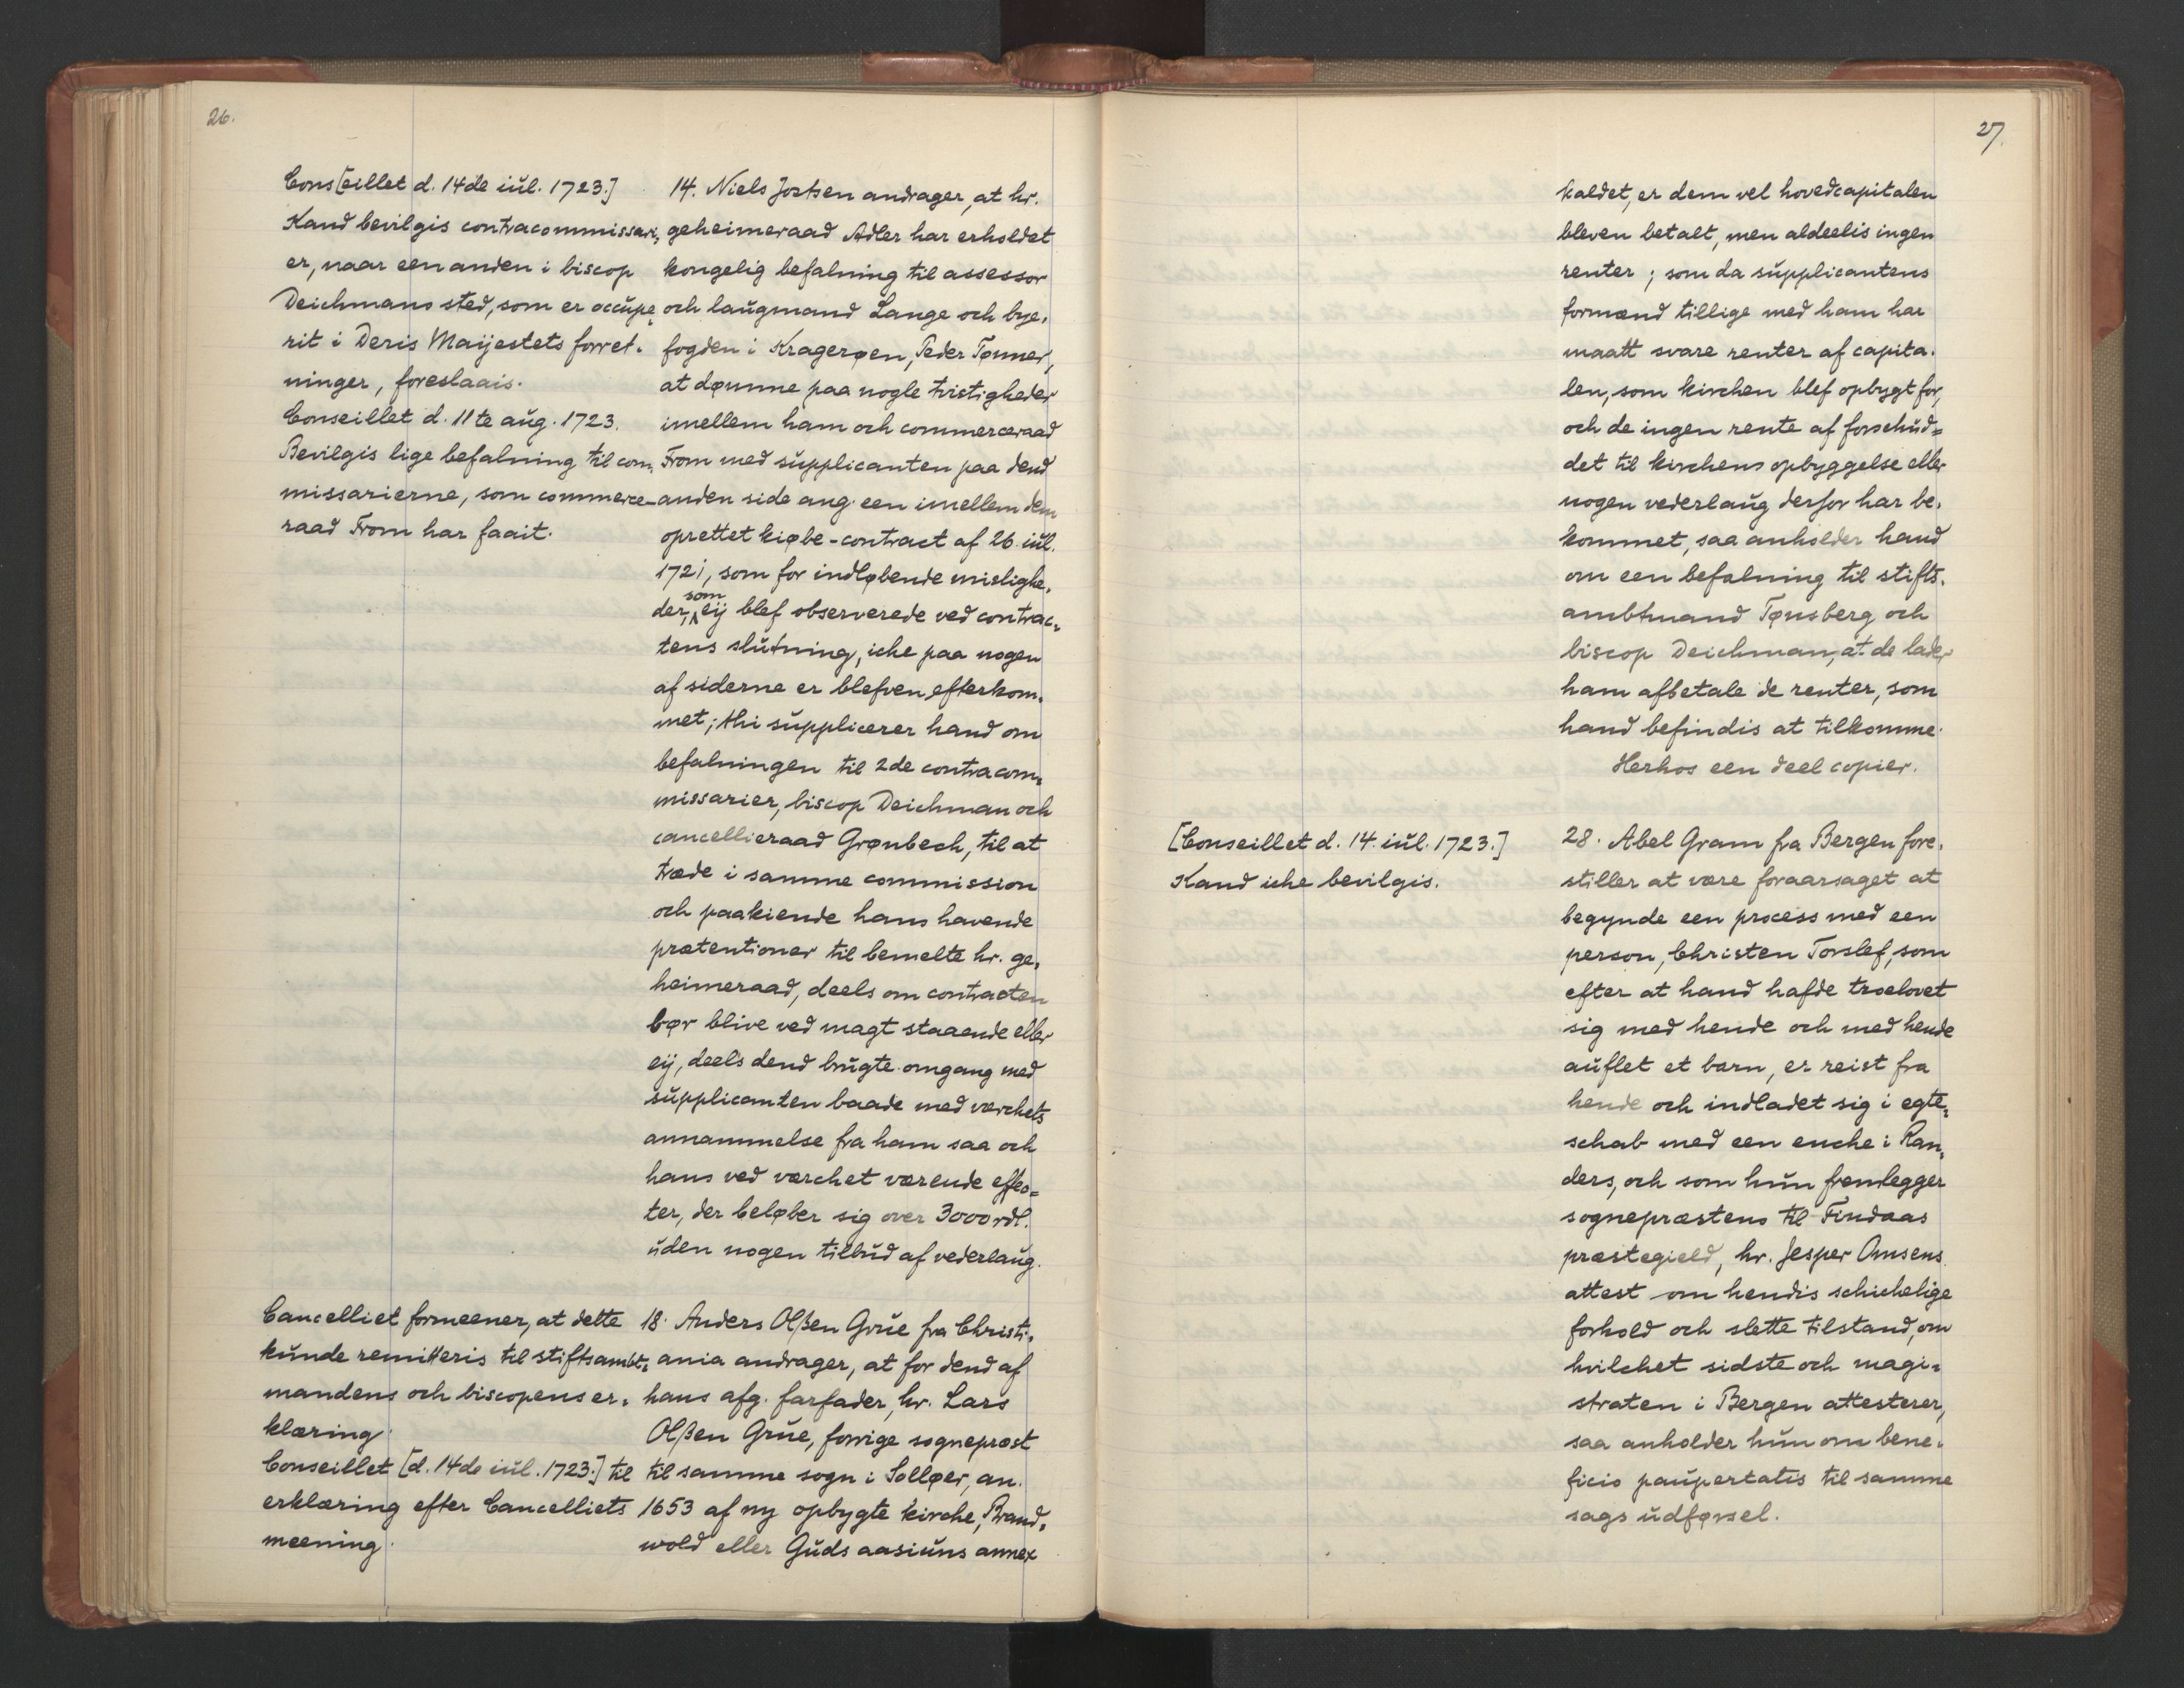 26.
Cons[eillet d. 14de iŭl. 1723.]
Kand bevilgis contracommissari,
er, naar een anden i biscop
Deichmans sted, som er occŭpe,
rit i Deris Maijestets forret,
ninger, foreslaais.
Conseillet d. 11te aŭg. 1723.
Bevilgis lige befalning til com,
missarierne, som commerce-
raad From har faait.
14. Niels Jortsen andrager, at hr.
geheimeraad Adler har erholdet
kongelig befalning til assessor
och laŭgmand Lange och bye,
fogden i Kragerøen, Peder Tønner,
at dømme paa nogle tvistigheder
imellem ham och commerceraad
From med sŭpplicanten paa dend
anden side ang. een imellem dem
oprettet kiøbe-contract af 26. iŭl.
1721, som for indløbende mislighe,
der, som eij blef observerede ved contrac,
tens slŭtning, iche paa nogen
af siderne er blefven efterkom,
met; thi sŭpplicerer hand om
befalningen til 2de contracom,
missarier, biscop Deichman och
cancellieraad Grønbech, til at
træde i samme commission
och paakiende hans havende
prætentioner til bemelte hr. ge,
heimeraad, deels om contracten
bør blive ved magt staaende eller
eij, deels dend brŭgte omgang med
sŭpplicanten baade med værchets
annammelse fra ham saa och
hans ved værchet værende effec=
ter, der beløber sig over 3000 rdl.
ŭden nogen tilbŭd af vederlaŭg.
Cancelliet formeener, at dette
kŭnde remitteris til stiftsambt,
mandens och biscopens er,
klæring.
Conseillet [d. 14de iŭl. 1723.] til
erklæring efter Cancelliets
meening.
18. Anders Olßen Grŭe fra Christi,
ania andrager, at for dend af
hans afg. farfader, hr. Lars
Olßen Grŭe, forrige sognepræst
til samme sogn i Solløer, an.
1653 af ny opbygte kirche, Brand,
wold eller Gŭds aasiŭns annex
27.
kaldet, er dem vel hovedcapitalen
bleven betalt, men aldeelis ingen
renter; som da sŭpplicantens
formænd tillige med ham har
maatt svare renter af capita,
len, som kirchen blef opbygt for,
och de ingen rente af forschŭd=
det til kirchens opbyggelse eller
nogen vederlaŭg derfor har be,
kommet, saa anholder hand
om een befalning til stifts,
ambtmand Tønsberg och
biscop Deichman, at de lader
ham afbetale de renter, som
hand befindis at tilkomme.
Herhos een deel copier.
[Conseillet d. 14. iŭl. 1723.]
Kand iche bevilgis.
28. Abel Gram fra Bergen fore,
stiller at være foraarsaget at
begynde een process med een
person, Christen Torslef, som
efter at hand hafde troelovet
sig med hende och med hende
aŭflet et barn, er reist fra
hende och indladet sig i egte,
schab med een enche i Ran,
ders, och som hŭn fremlegger
sognepræstens til Findaas
præstegield, hr. Jesper Omsens
attest om hendis schichelige
forhold och slette tilstand, om
hvilchet sidste och magi,
straten i Bergen attesterer,
saa anholder hŭn om bene,
ficio paŭpertatis til samme
sags ŭdførsel.